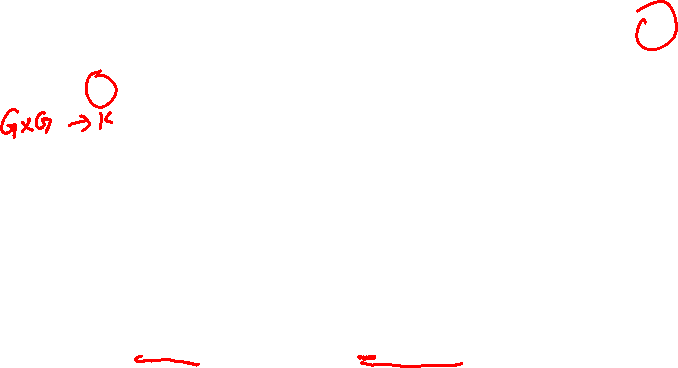 G×G → K